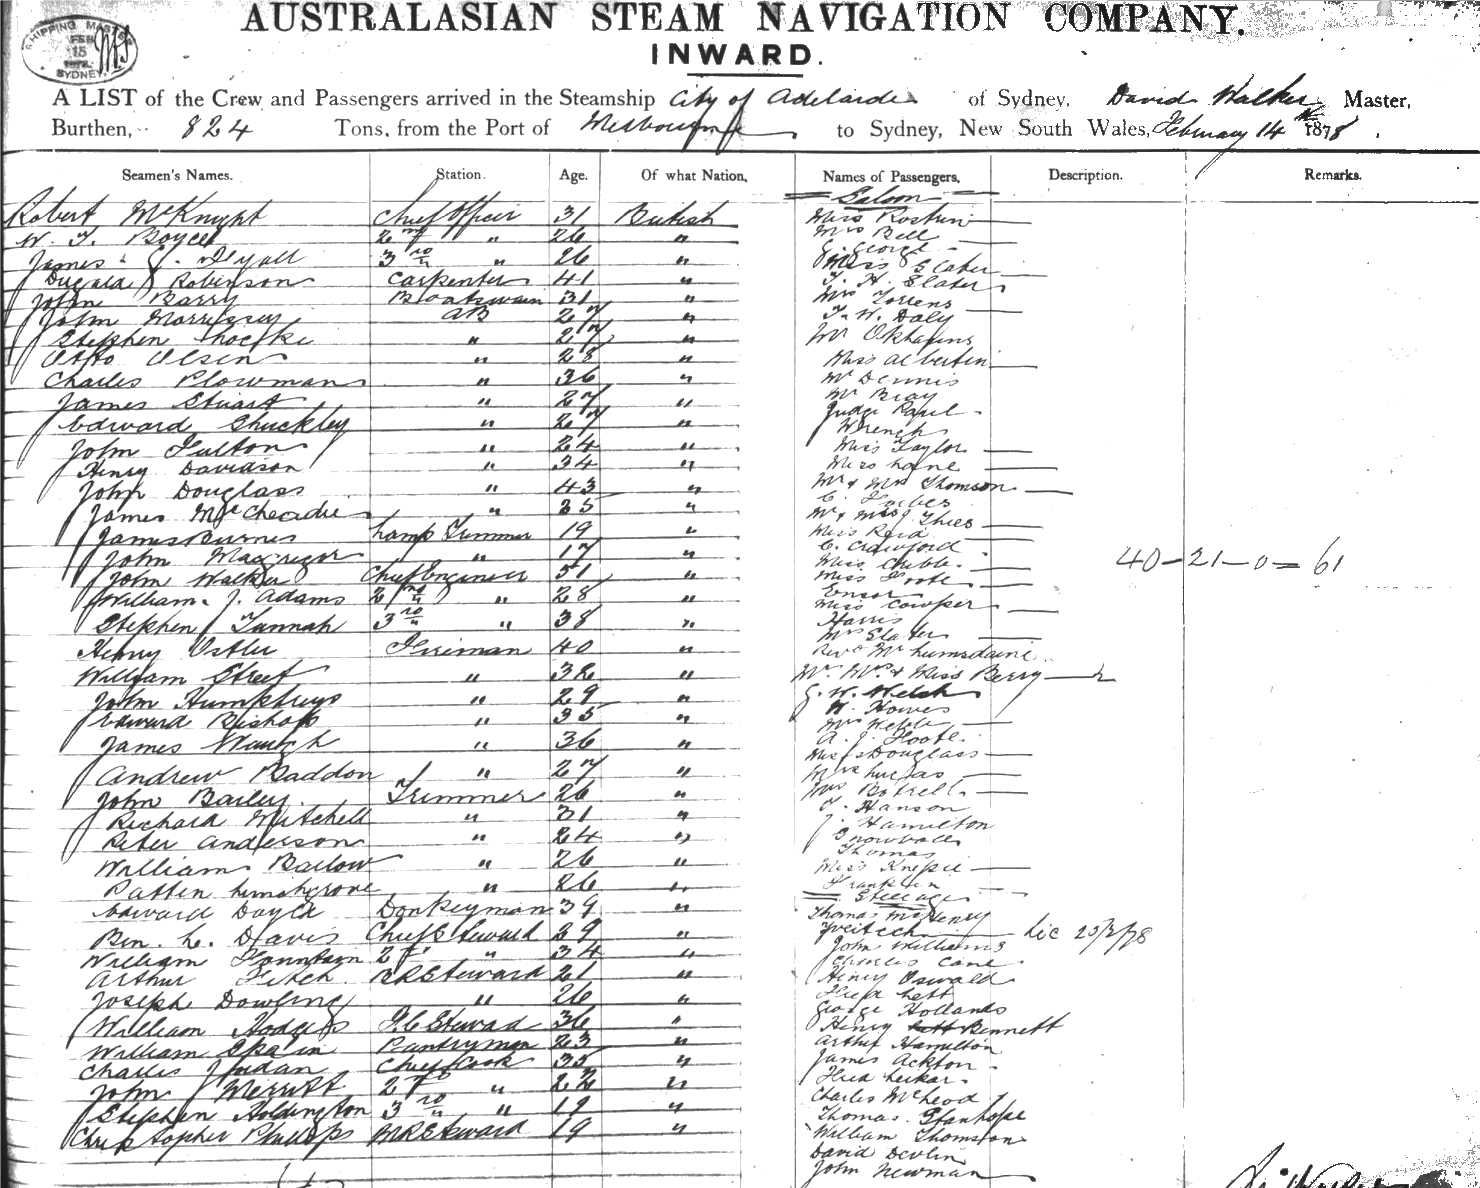 AUSTRALASIAN STEAM NAVIGATION COMPANY.
INWARD.
SHIPPING MASTER FEB 15 SYDNEY
A LIST of the Crew and Passengers arrived in the Steamship City of Adelaide of Sydney, David Walker Master,
Burthen, 824 Tons, from the Port of Melbourne to Sydney, New South Wales, February 14th 1878.
Seamen's Names. Station. Age. Of what Nation, Names of Passengers, Description. Remarks.
Saloon
Robert McKnight Chief Officer 31 British
W. T. Boyce 2nd " 26 "
James G. Lyall 3rd " 26 "
Dugald Robinson Carpenter 41 "
John Barry Boatswain 31 "
John Morrissey AB 27 "
Stephen 27 "
Otto Olsen " 28 "
Charles Plowman " 36 "
James Stuart " 27 "
Edward Shuckley " 27 "
John Fulton " 24 "
Henry Davidson " 34 "
John Douglass " 43 "
James McCheadie " 25 "
James Burnes Lamp Trimmer 19 "
John Macgregor " 17 "
John Walker Chief Engineer 51 "
William J. Adams 2nd " 28 "
Stephen Tannah 3rd " 38 "
Henry Ostler Fireman 40 "
William Street " 32 "
John Humphreys " 29 "
Edward Bishop " 35 "
James Waugh " 36 "
Andrew Baddon " 27 "
John Bailey Trimmer 26 "
Richard Mitchell " 31 "
Peter Anderson " 24 "
William Barlow " 26 "
Patten " 26 "
Edward Donkeyman 39 "
Ben. L. Davis Chief Steward 29 "
William Fountain 2nd " 34 "
Arthur Fitch BR Steward 21 "
Joseph Dowling " 26 "
William Hodges F.C Steward 36 "
William Spain Pantryman 23 "
Charles Jordan Chief Cook 35 "
John Merritt 2nd " 22 "
Stephen Addington 3rd " 19 "
Christopher Phillips MR Steward 19 "
Miss
Mrs Bell
G. George
Miss Slater
T. H. Slater
Mrs Torrens
T. W. Daly
Mr
Miss Albertini
Mr Dennis
Mr Bray
Judge Paul
Wrench
Miss Taylor
Miss Lane
Mr & Mrs Thomson
C. Forbes
Mr & Mrs Thies
Miss Reid
C. Crawford
Miss Chubb
Miss Foote
Ensor
Miss Cowper
Harris
Mrs Slater
Revd Mr Lumsdaine
Mr. Mrs & Miss Berry
G. W. Welch
W. Howes
Mrs Webb
A. J. Foote
Miss Douglass
Mrs Lucas
Mrs Botrell
T. Hanson
J. Hamilton
Snowball
Thomas
Miss Knipie
Franklin
Steerage
Thomas McHenry
Veitech Lic 23/2/78
John Williams
Charles Cane
Henry Oswald
Fred Lett
George Hollands
Henry Bennett
Arthur Hamilton
James Ackton
Charles McLeod
Thomas Stanhope
William Thomson
David Devlin
John Newman
40-21-0=61